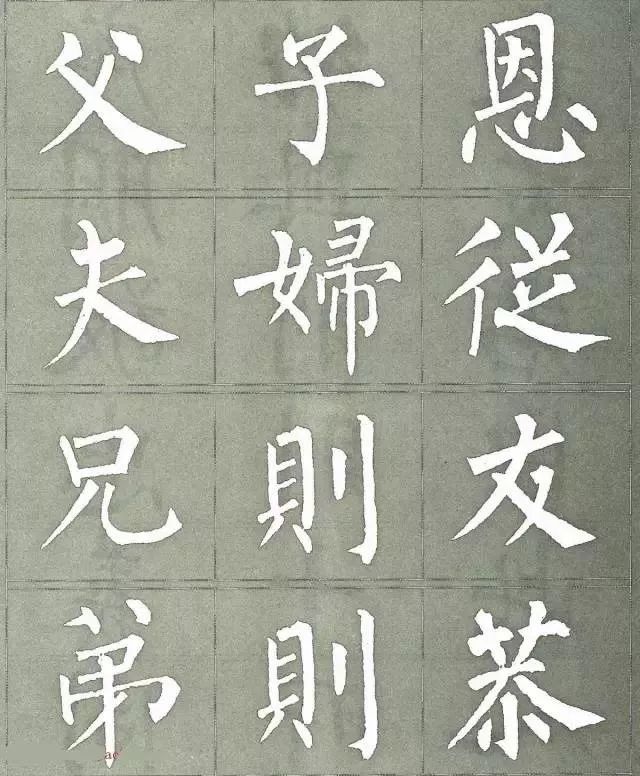 父子恩
夫婦従
兄則友
弟則恭